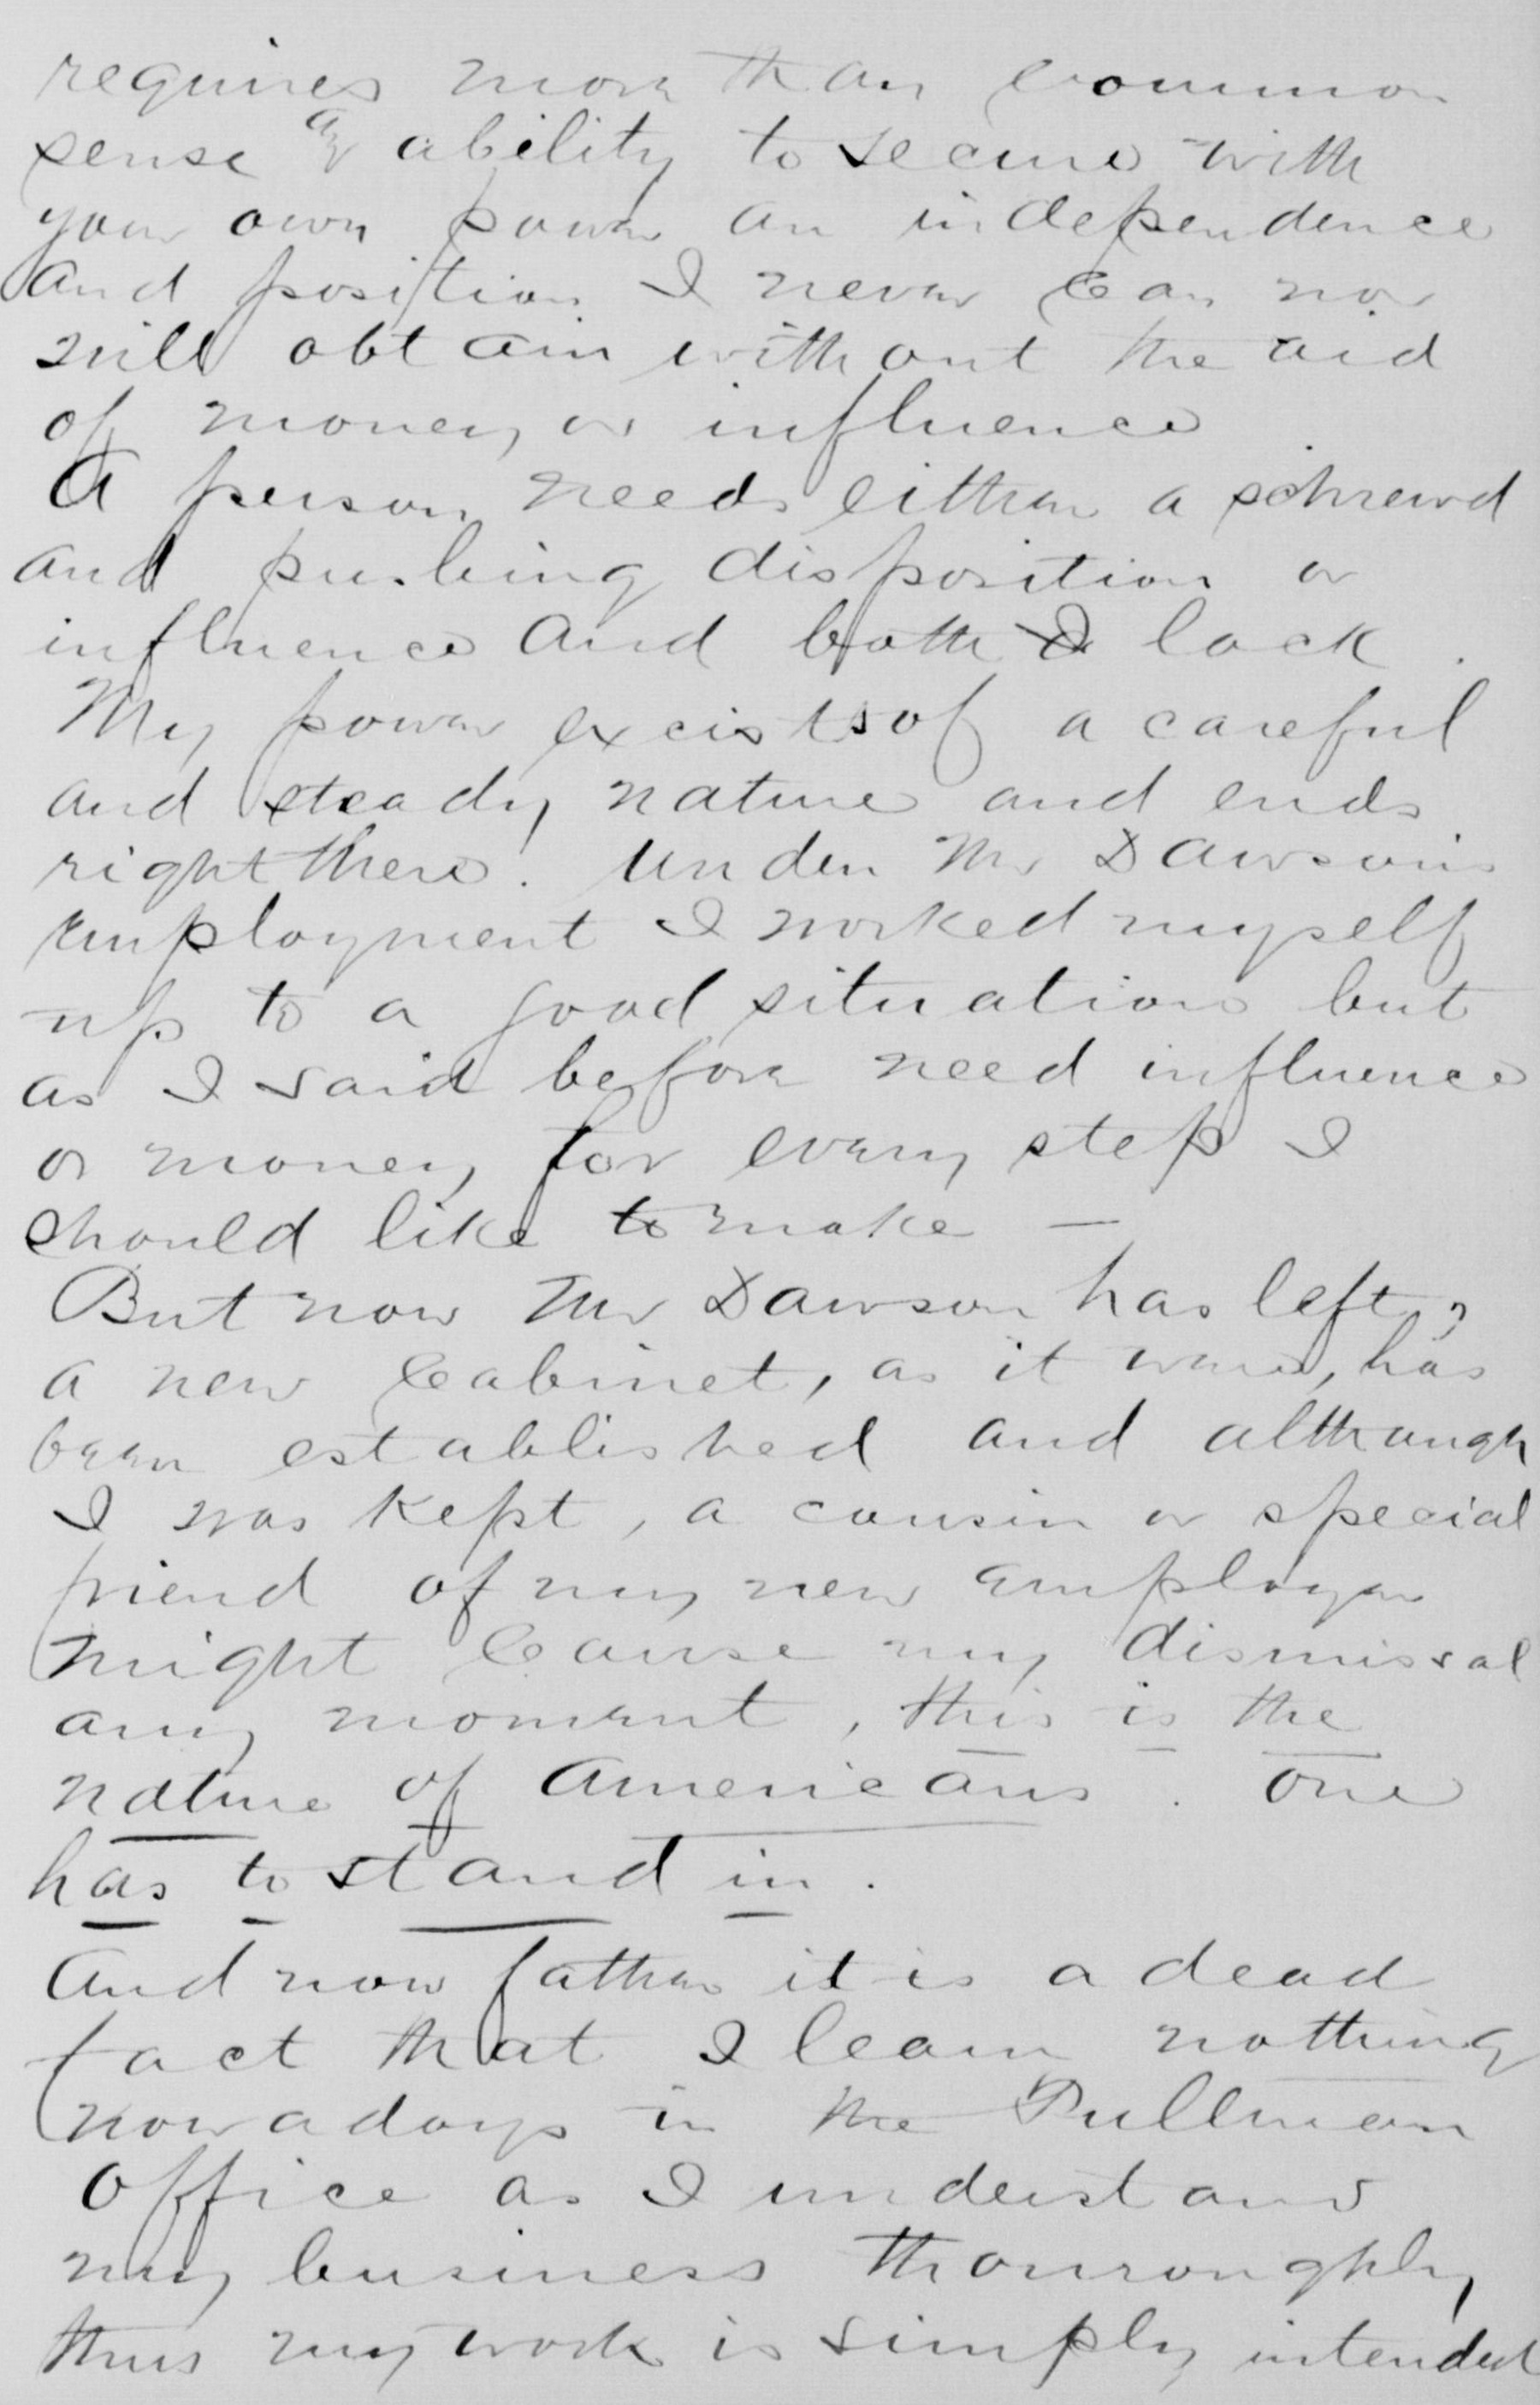 requires more than common
sense & ability to secure with
your own power an independence
and position I never can nor
will obtain without the aid
of money or influence
A person needs either a schrewd
and pushing disposition or
influence and both I lack.
My power excists of a careful
and steady nature and ends
right there. Under Mr Dawson's
employment I worked myself
up to a good situation but
as I said before need influence
or money for every step I
should like to make —
But now Mr Dawson has left,
a new Cabinet, as it were, has
been established and although
I was kept, a cousin or special
friend of my new employer
might cause my dismissal
any moment, this is the
nature of Americans. One
has to stand in.
And now father it is a dead
fact that I learn nothing
now a days in the Pullman
Office as I understand
my business thouroughly,
thus my work is simply intended